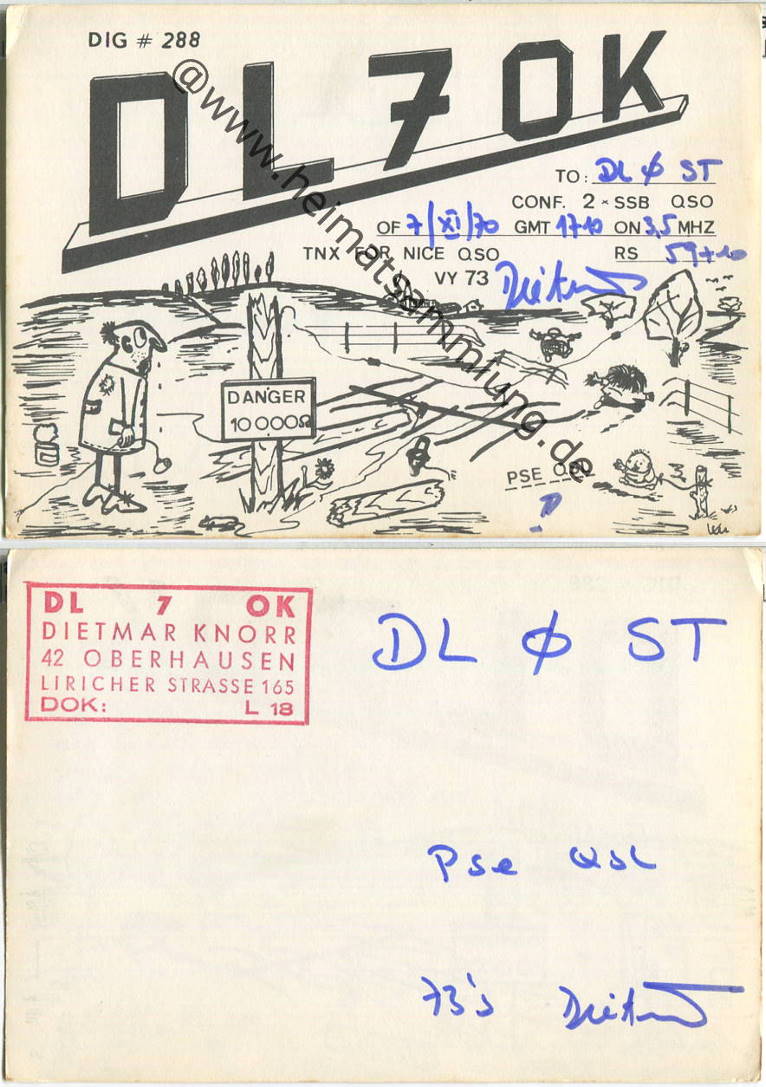 DIG # 288
DL7OK
TO: DL Ø ST
CONF. 2 × SSB QSO
OF 7/XI/70 GMT 1710 ON 3,5 MHZ
TNX FOR NICE QSO RS 59+10
VY 73 Dietmar
DANGER
10000Ω
PSE QSL
?
@www.heimatsammlung.de
DL 7 OK
DIETMAR KNORR
42 OBERHAUSEN
LIRICHER STRASSE 165
DOK: L 18
DL Ø ST
Pse QSL
73's Dietmar